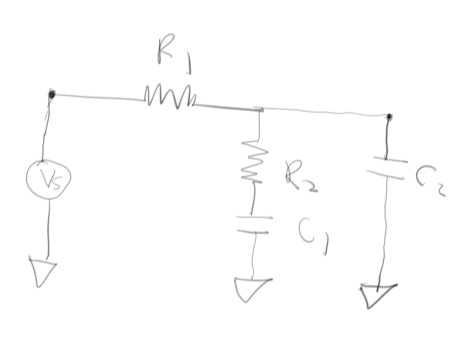 R1
Vs
R2
C2
C1